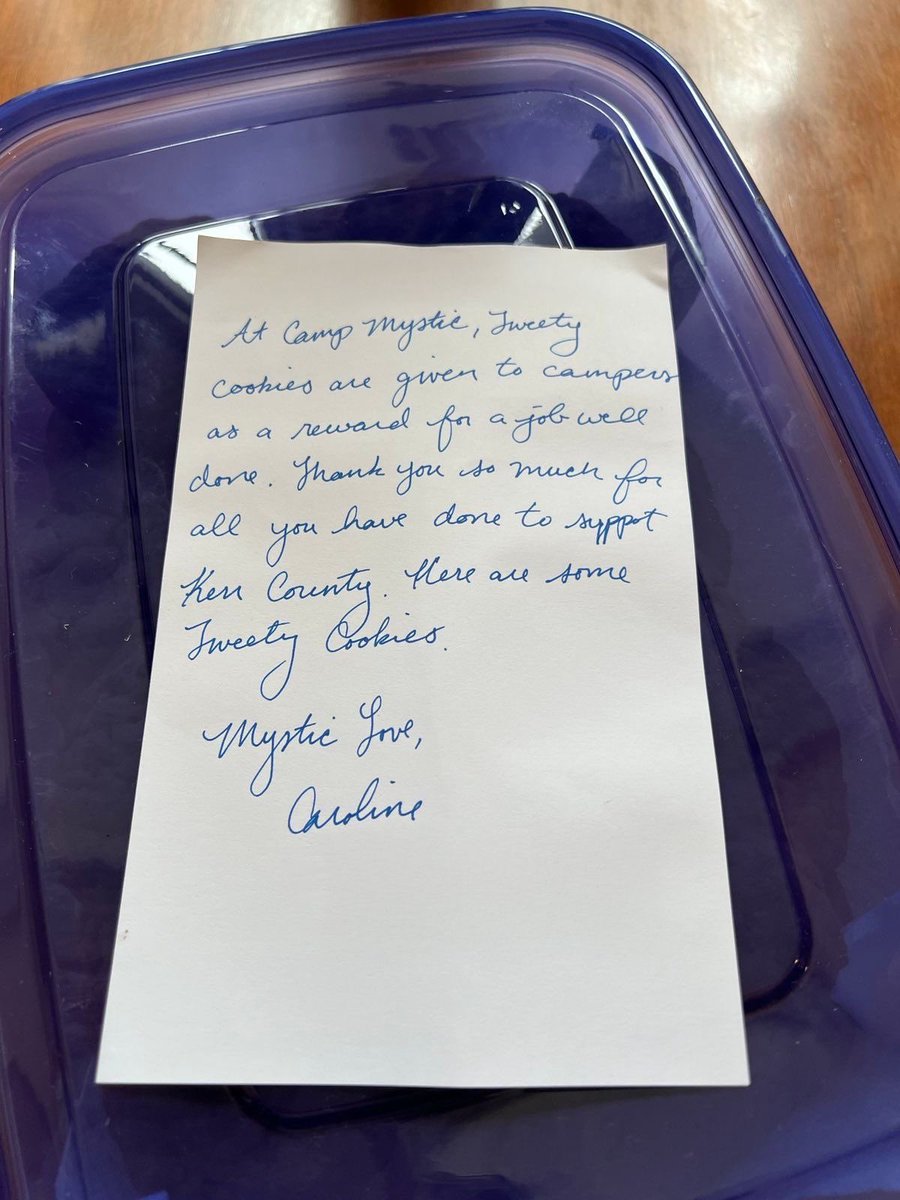 At Camp Mystic, Tweety
Cookies are given to campers
as a reward for a job well
done. Thank you so much for
all you have done to syppot
Kerr County. Here are some
Tweety Cookies.
Mystic Love,
Caroline